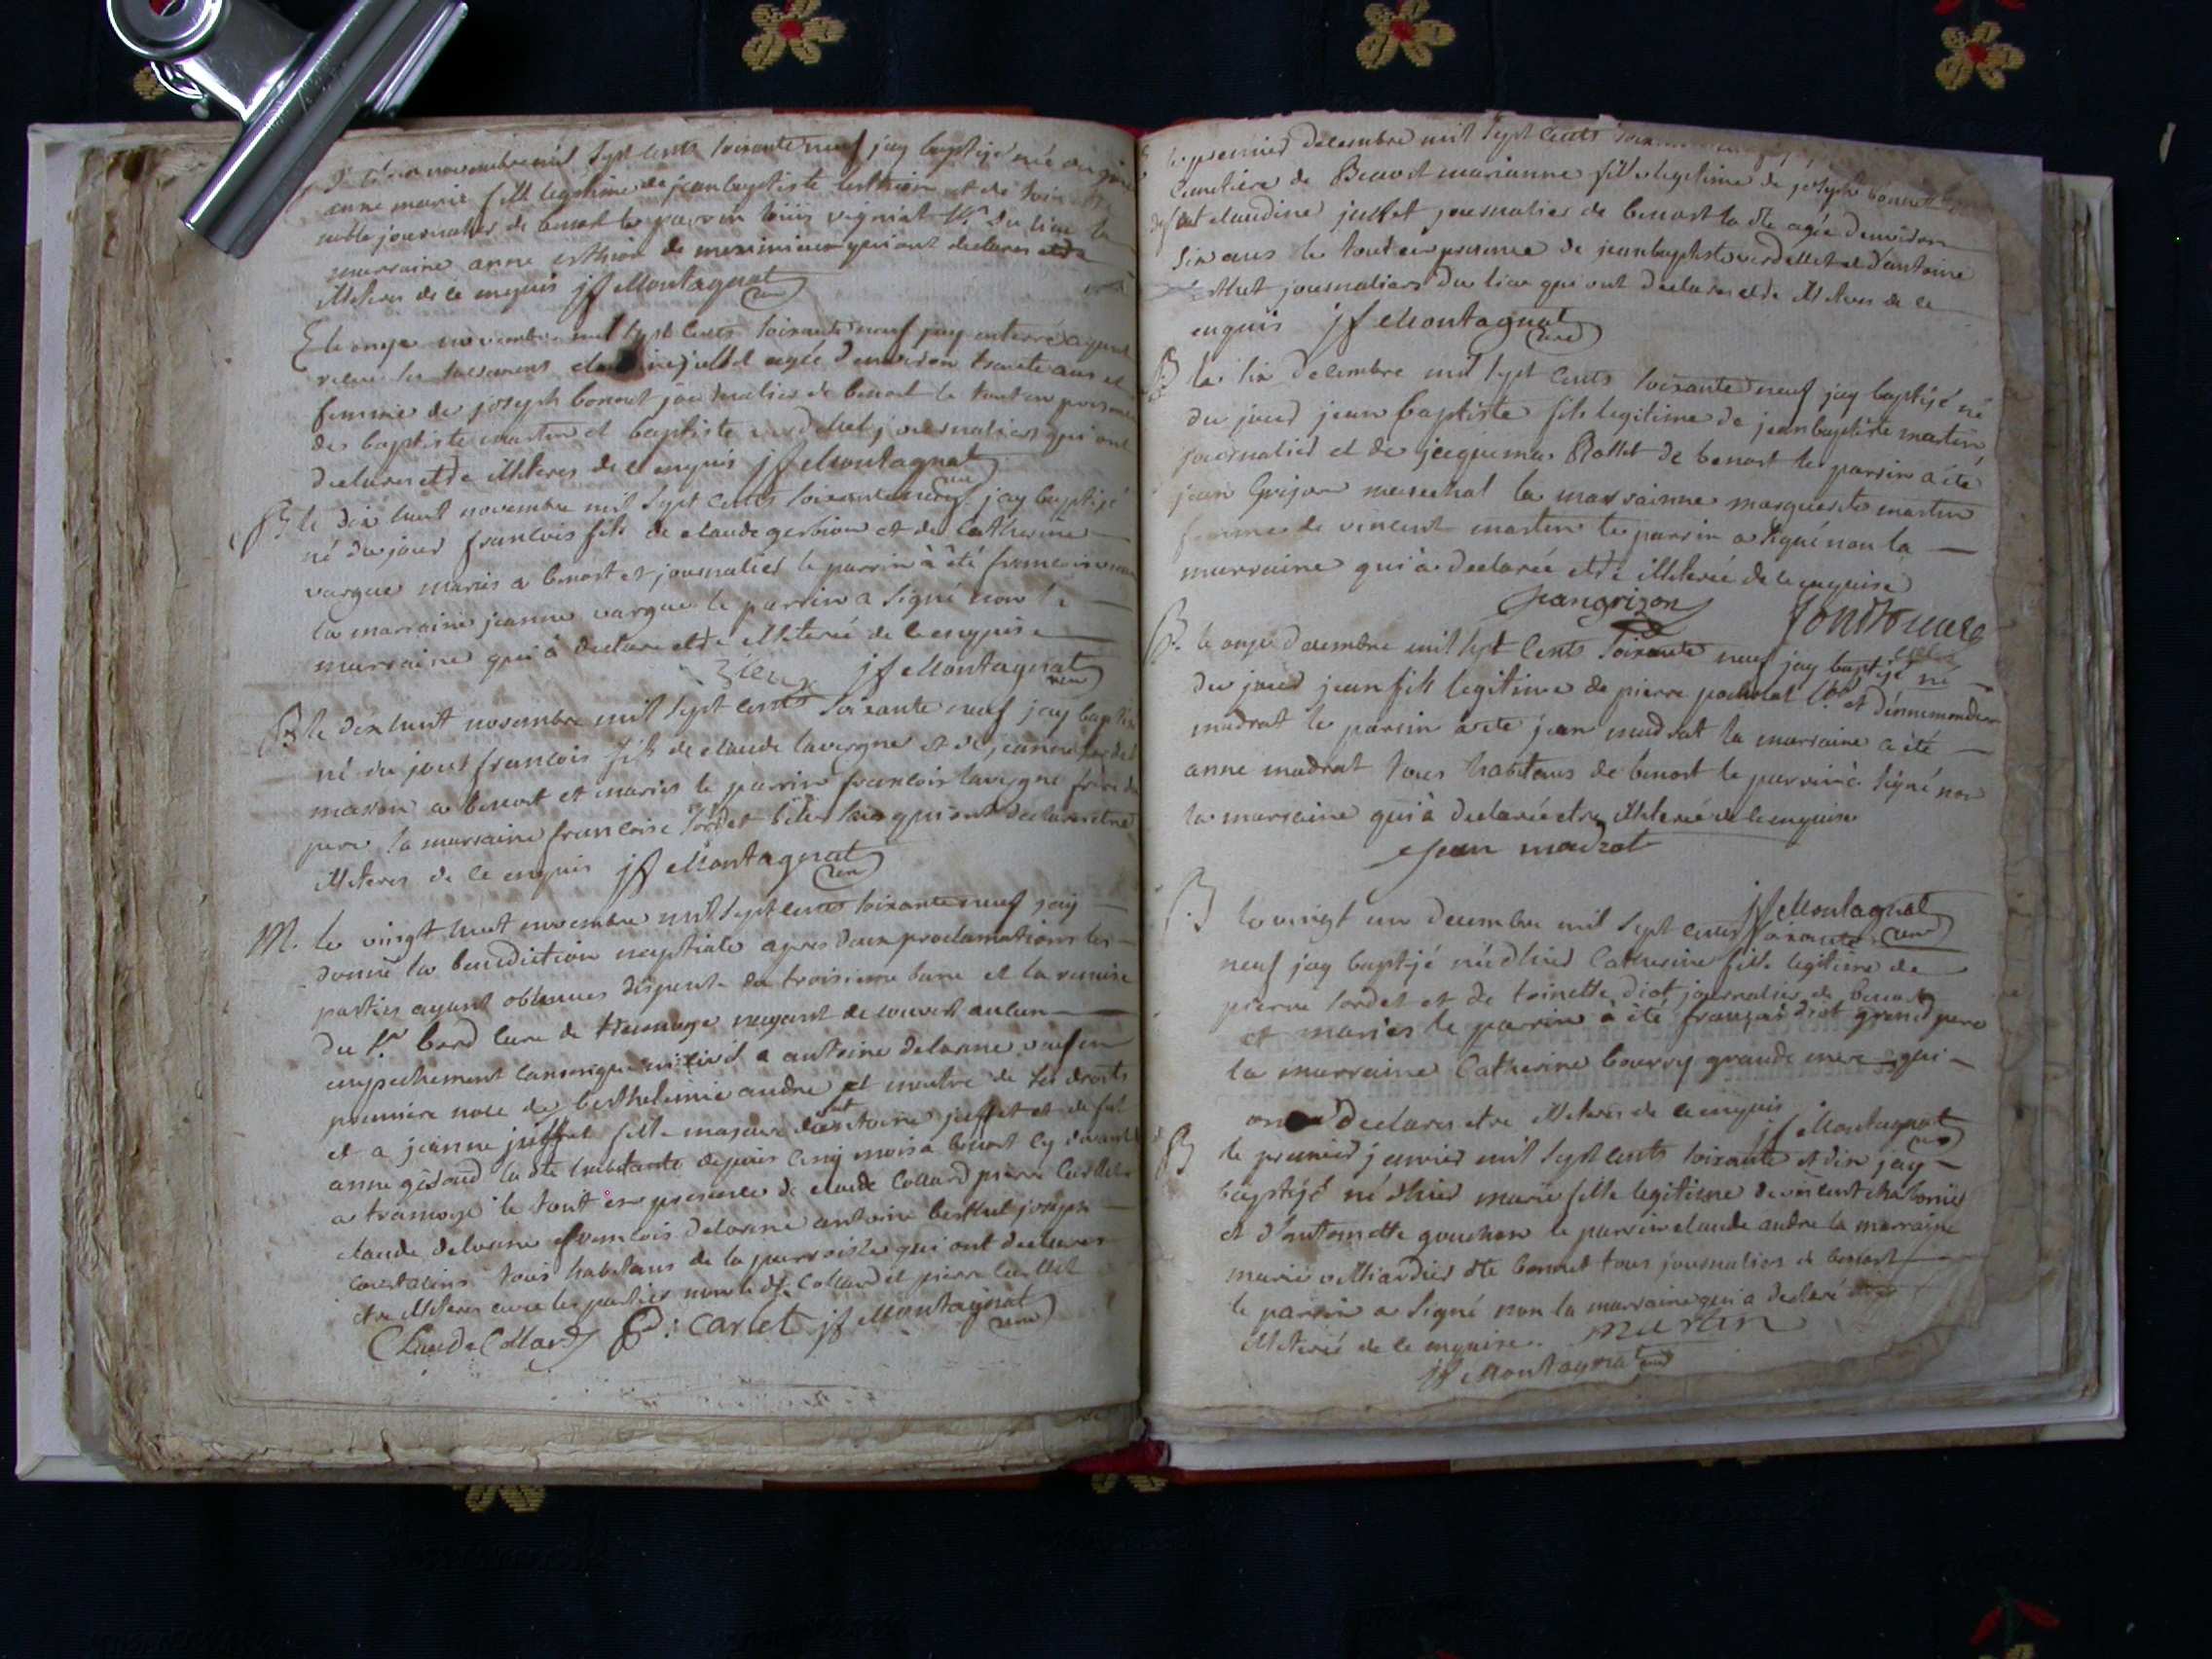 novembre mil sept cents soixante neuf jay baptisé née du jour
anne marie fille legitime de jean baptiste berthion et de
journalier de benost le parrain louis vigniat du lieu la
marraine anne berthion de meximieux qui ont declares etre
illiteres de ce enquis jf Montagnat curé
E le onze novembre mil sept cents soixante neuf jay enterré ayant
recue les sacremens claudine juffet agée denviron trente ans et
femme de joseph bonnet journalier de benost le tout en presence
de baptiste martin et baptiste verdellet journaliers qui ont
declares etre illiteres de ce enquis jf Montagnat curé
B le dix huit novembre mil sept cents soixante neuf jay baptisé
né du jour francois fils de claude gerbion et de Catherine
vargue mariés a benost et journalier le parrin à été francois
la marraine jeanne vargue le parrin a signé non la
marraine qui à declare etre illiterée de ce enquise
jf Montagnat curé
B le dix huit novembre mil sept cents soixante neuf jay baptisé
né du jour francois fils de claude lavergne et de jeanne
masson a benost et mariés le parrin francois lavergne frere du
pere la marraine francoise sordet qui ont declares etre
illiteres de ce enquis jf Montagnat curé
M. le vingt huit novembre mil sept cents soixante neuf jay
donné la benediction nuptiale apres deux proclamations les
parties ayant obtenues dispense du troisieme banc et la remise
du Sr. bord cure de tramoye nayant decouvert aucun
empechement canonique ni civil a antoine delorme veuf en
premiere noce de berthelemie andre et maitre de ses droits
et a jeanne juffet fille majeure dantoine juffet et de fut
anne gidoud la dte habitante depuis cinq mois a benost cy devant
a tramoye le tout en presence de claude Collard pierre
claude delorme francois delorme antoine berthet joseph
tous habitans de la parroisse qui ont declares
etre illiteres avec les parties non le dt. Collard et pierre
Claude Collard P: Carlet jf Montagnat curé
le premier decembre mil sept cents
Cimetiere de Benost marianne fille legitime de joseph bonnet
defunt claudine juffet journalier de benost la dte agée denviron
six ans le tout en presence de jean baptiste verdellet et dantoine
berthet journaliers du lieu qui ont declares etre illiteres de ce
enquis jf Montagnat curé
B le six decembre mil sept cents soixante neuf jay baptisé né
du jour jean baptiste fils legitime de jean baptiste martin
journalier et de jacquema Rollet de benost le parrin a été
jean Grison marechal la marrainne marguerite martin
femme de vincent martin le parrin a signé non la
marraine qui à declarée etre illiterée de ce enquise
Jean grizon
B. le onze decembre mil sept cents soixante neuf jay baptisé né
du jour jean fils legitime de pierre pocholat et dennemonde
madrat le parrin a ete jean madrat la marraine a été
anne madrat tous habitans de benost le parrain à signé non
la marraine qui à declarée etre illiterée de ce enquise
Jean madrat
jf Montagnat curé
B le vingt un decembre mil sept cents soixante
neuf jay baptisé née d'hier Catherine fille legitime de
pierre sordet et de toinette diot journalier de benost
et mariés le parrin à été françois diot grand pere
la marraine Catherine bourry grande mere qui
ont declares etre illiteres de ce enquis jf Montagnat curé
B le premier janvier mil sept cents soixante et dix jay
baptisé né d'hier marie fille legitime de vincent
et d'antoinette gouchon le parrin claude andre la marraine
marie villiardier dte bonnet tous journaliers de benost
le parrin a signé non la marraine qui a declaré etre
illiterée de ce enquise.
jf Montagnat curé